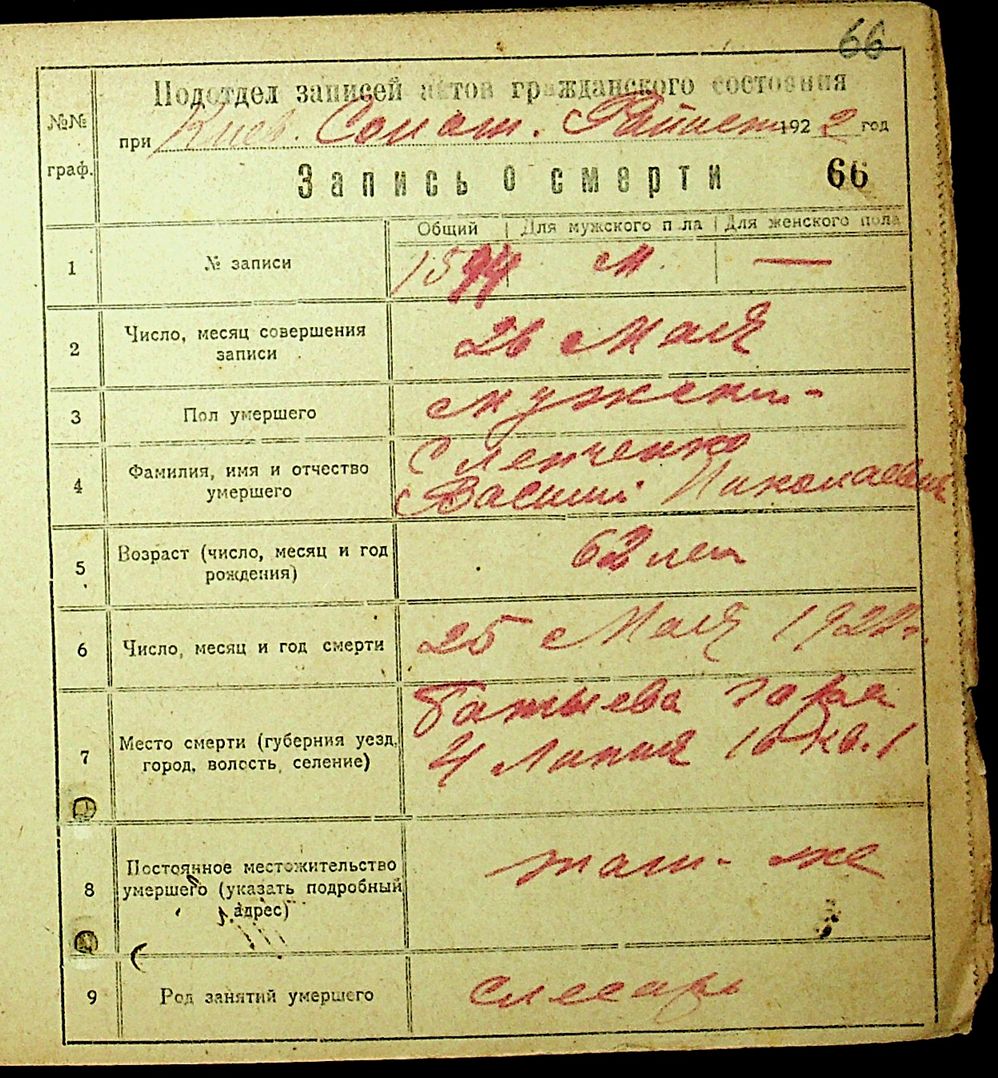 66
Подотдел записей актов гражданского состояния
№№ граф.
при Киев. Солом. Райпст 1922 год
Запись о смерти 66
Общий Для мужского пола Для женского пола
1 № записи 1594 м. —
2 Число, месяц совершения записи 26 Мая
3 Пол умершего мужск-
4 Фамилия, имя и отчество умершего Слепченко
Василий Николаевич
5 Возраст (число, месяц и год рождения) 62 лет
6 Число, месяц и год смерти 25 Мая 1922 г.
7 Место смерти (губерния уезд, город, волость, селение) Батыева гора
4 Линия 16 кв. 1
8 Постоянное местожительство умершего (указать подробный адрес) там-же
9 Род занятий умершего Слесарь